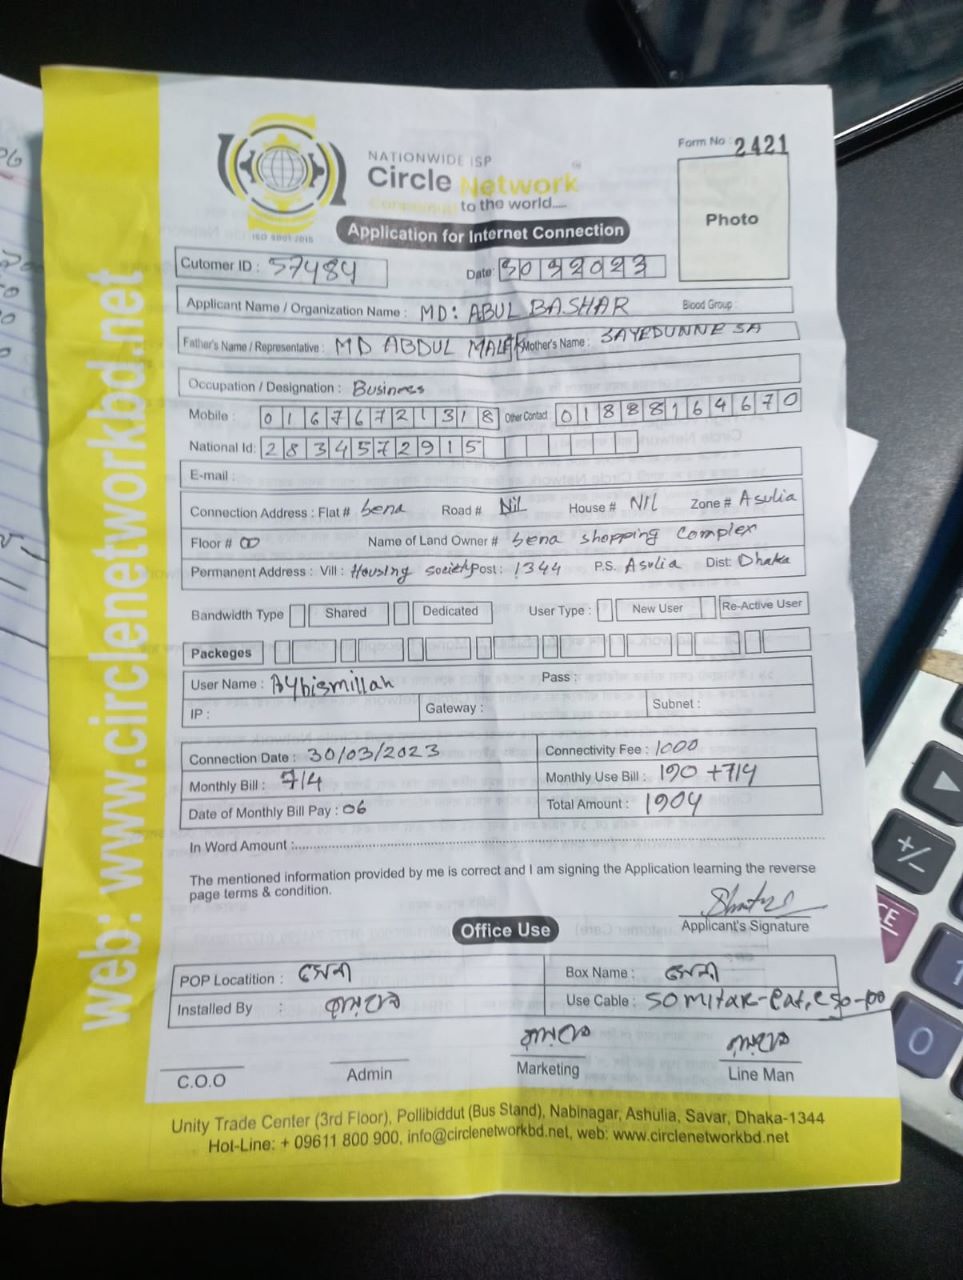 NATIONWIDE ISP
Circle Network
Connecting to the world.....
ISO 9001:2015
Form No 2421
Photo
Application for Internet Connection
Cutomer ID : 57484 Date: 30032023
Applicant Name / Organization Name : MD: ABUL BASHAR Blood Group :
Father's Name / Representative : MD ABDUL MALEK Mother's Name : SAYEDUNNE SA
Occupation / Designation : Business
Mobile : 01676721318 Other Contact 01888164670
National Id: 2834572915
E-mail :
Connection Address : Flat # Sena Road # Nil House # NIL Zone # Asulia
Floor # 00 Name of Land Owner # Sena shopping complex
Permanent Address : Vill : Housing society Post : 1344 P.S. Asulia Dist: Dhaka
Bandwidth Type Shared Dedicated User Type : New User Re-Active User
Packeges
User Name : Aybismillah Pass :
IP : Gateway : Subnet :
Connection Date : 30/03/2023 Connectivity Fee : 1000
Monthly Bill : 714 Monthly Use Bill : 190 + 714
Date of Monthly Bill Pay : 06 Total Amount : 1904
In Word Amount :
The mentioned information provided by me is correct and I am signing the Application learning the reverse
page terms & condition.
Applicant's Signature
Office Use
POP Locatition : সেনা Box Name : সেনা
Installed By : Use Cable : 50 mitar-
C.O.O Admin Marketing Line Man
Unity Trade Center (3rd Floor), Pollibiddut (Bus Stand), Nabinagar, Ashulia, Savar, Dhaka-1344
Hot-Line: + 09611 800 900, info@circlenetworkbd.net, web: www.circlenetworkbd.net
web: www.circlenetworkbd.net